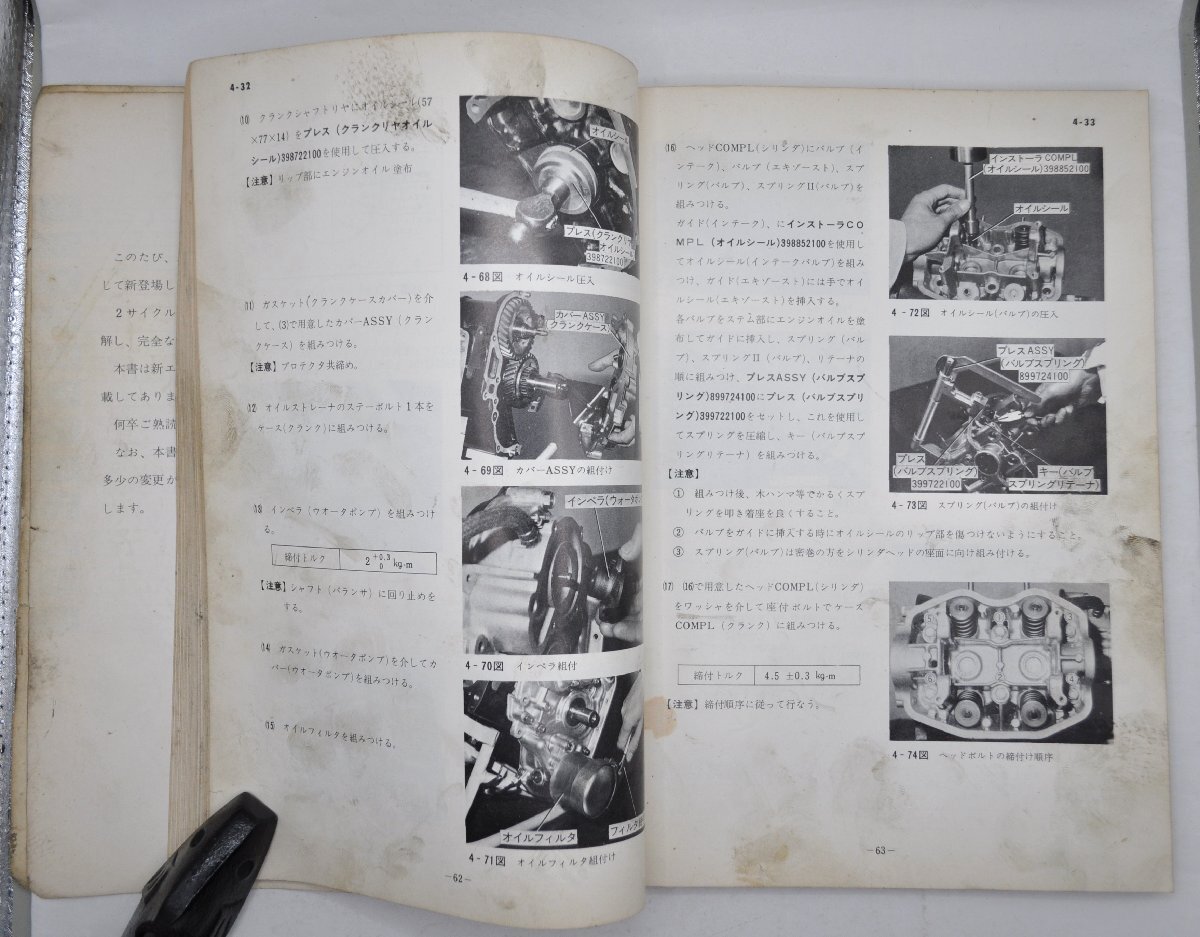 このたび、
じて新登場し
2サイクル
解し、完全な
本書は新エ
載してありま
何卒ご熟読
なお、本書
多少の変更が
します。
4-32
⑽ クランクシャフトリヤにオイルシール(57
×77×14) をプレス (クランクリヤオイル
シール)398722100を使用して圧入する。
【注意】リップ部にエンジンオイル塗布
⑾ ガスケット(クランクケースカバー) を介
して、(3)で用意したカバーASSY (クラン
クケース) を組みつける。
【注意】プロテクタ共締め。
⑿ オイルストレーナのステーボルト1本を
ケース(クランク)に組みつける。
⒀ インペラ (ウオータポンプ) を組みつけ
る。
締付トルク 2 +0.3 0 kg-m
【注意】シャフト (バランサ) に回り止めを
する。
⒁ ガスケット(ウオータポンプ) を介してカ
バー(ウオータポンプ) を組みつける。
⒂ オイルフィルタを組みつける。
オイルシール
プレス(クランクリ
オイルシール
398722100
4-68図 オイルシール圧入
カバーASSY
(クランクケース)
4-69図 カバーASSYの組付け
インペラ(ウォータポン
4-70図 インペラ組付
オイルフィルタ
フィルタ
4-71図 オイルフィルタ組付け
—62—
4-33
⒃ ヘッドCOMPL(シリンダ)にバルブ (イ
ンテーク)、バルブ (エキゾースト)、スプ
リング(バルブ)、スプリングII(バルブ)を
組みつける。
ガイド(インテーク)、にインストーラCO
MPL (オイルシール)398852100を使用し
てオイルシール(インテークバルブ)を組み
つけ、ガイド(エキゾースト)には手でオイ
ルシール(エキゾースト)を挿入する。
各バルブをステム部にエンジンオイルを塗
布してガイドに挿入し、スプリング (バル
ブ)、スプリングII (バルブ)、リテーナの
順に組みつけ、プレスASSY (バルブスプ
リング)899724100にプレス (バルブスプリ
ング)399722100をセットし、これを使用し
てスプリングを圧縮し、キー (バルブスプ
リングリテーナ) を組みつける。
【注意】
① 組みつけ後、木ハンマ等でかるくスプ
リングを叩き着座を良くすること。
② バルブをガイドに挿入する時にオイルシールのリップ部を傷つけないようにすること。
③ スプリング(バルブ)は密巻の方をシリンダヘッドの座面に向け組み付ける。
⒄ ⒃で用意したヘッドCOMPL(シリンダ)
をワッシャを介して座付ボルトでケース
COMPL (クランク) に組みつける。
締付トルク 4.5 ±0.3 kg-m
【注意】締付順序に従って行なう。
インストーラCOMPL
(オイルシール)398852100
オイルシール
4-72図 オイルシール(バルブ)の圧入
プレスASSY
(バルブスプリング)
899724100
プレス
(バルブスプリング)
399722100
キー(バルブ
スプリングリテーナ)
4-73図 スプリング(バルブ)の組付け
5
1
3
6
2
4
4-74図 ヘッドボルトの締付け順序
—63—